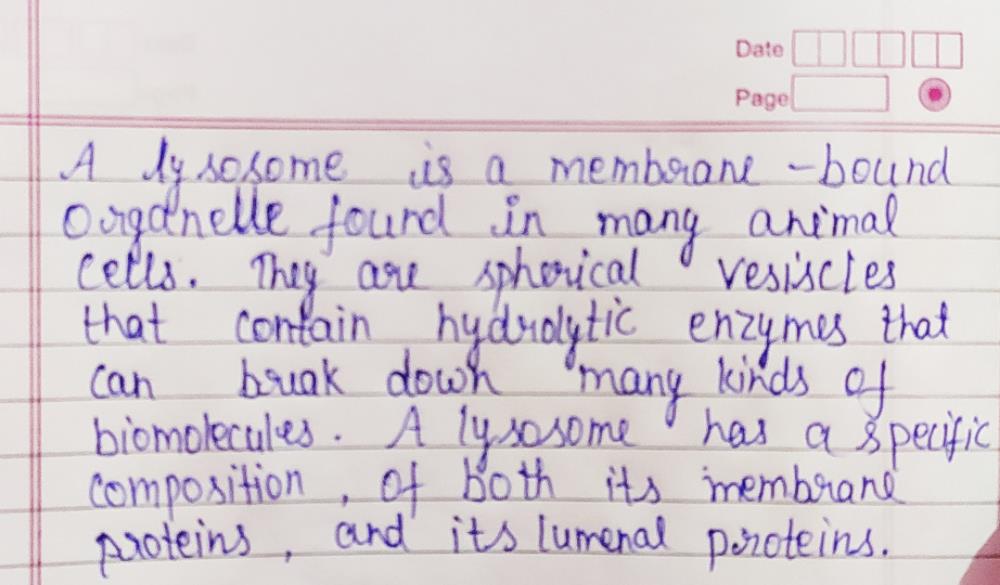 Date
Page
A lysosome is a membrane-bound
organelle found in many animal
cells. They are spherical vesiscles
that contain hydrolytic enzymes that
can break down many kinds of
biomolecules. A lysosome has a specific
composition, of both its membrane
proteins, and its lumenal proteins.